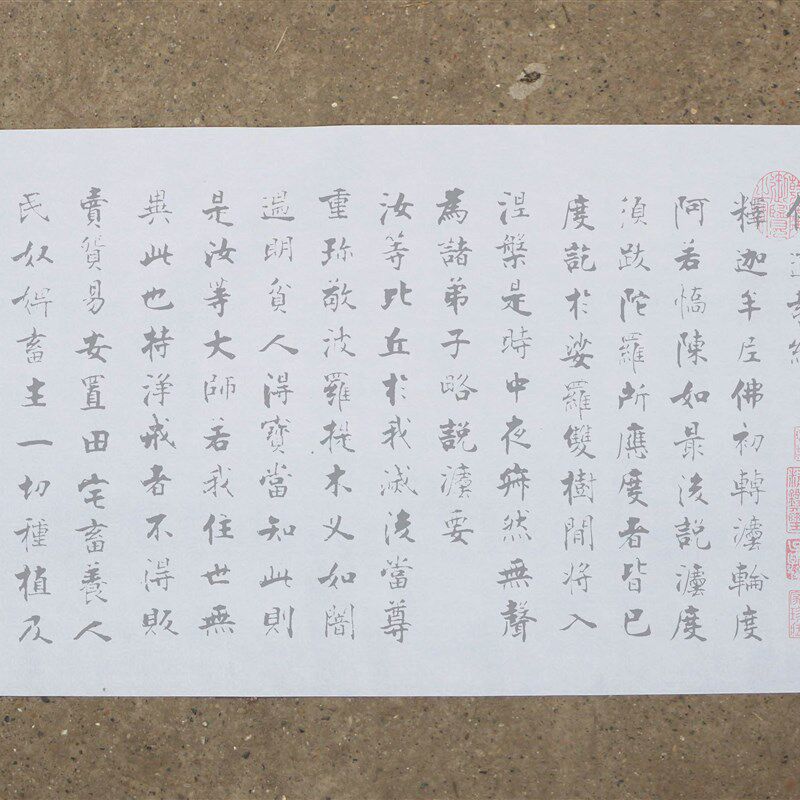 釋迦牟尼佛初轉灋輪度
阿若憍陳如最後說灋度
須跋陀羅所應度者皆已
度訖於娑羅雙樹間將入
涅槃是時中夜寂然無聲
為諸弟子略說灋要
汝等比丘於我滅後當尊
重珍敬波羅提木叉如闇
遇明貧人得寶當知此則
是汝等大師若我住世無
異此也持淨戒者不得販
賣貿易安置田宅畜養人
民奴婢畜生一切種植及